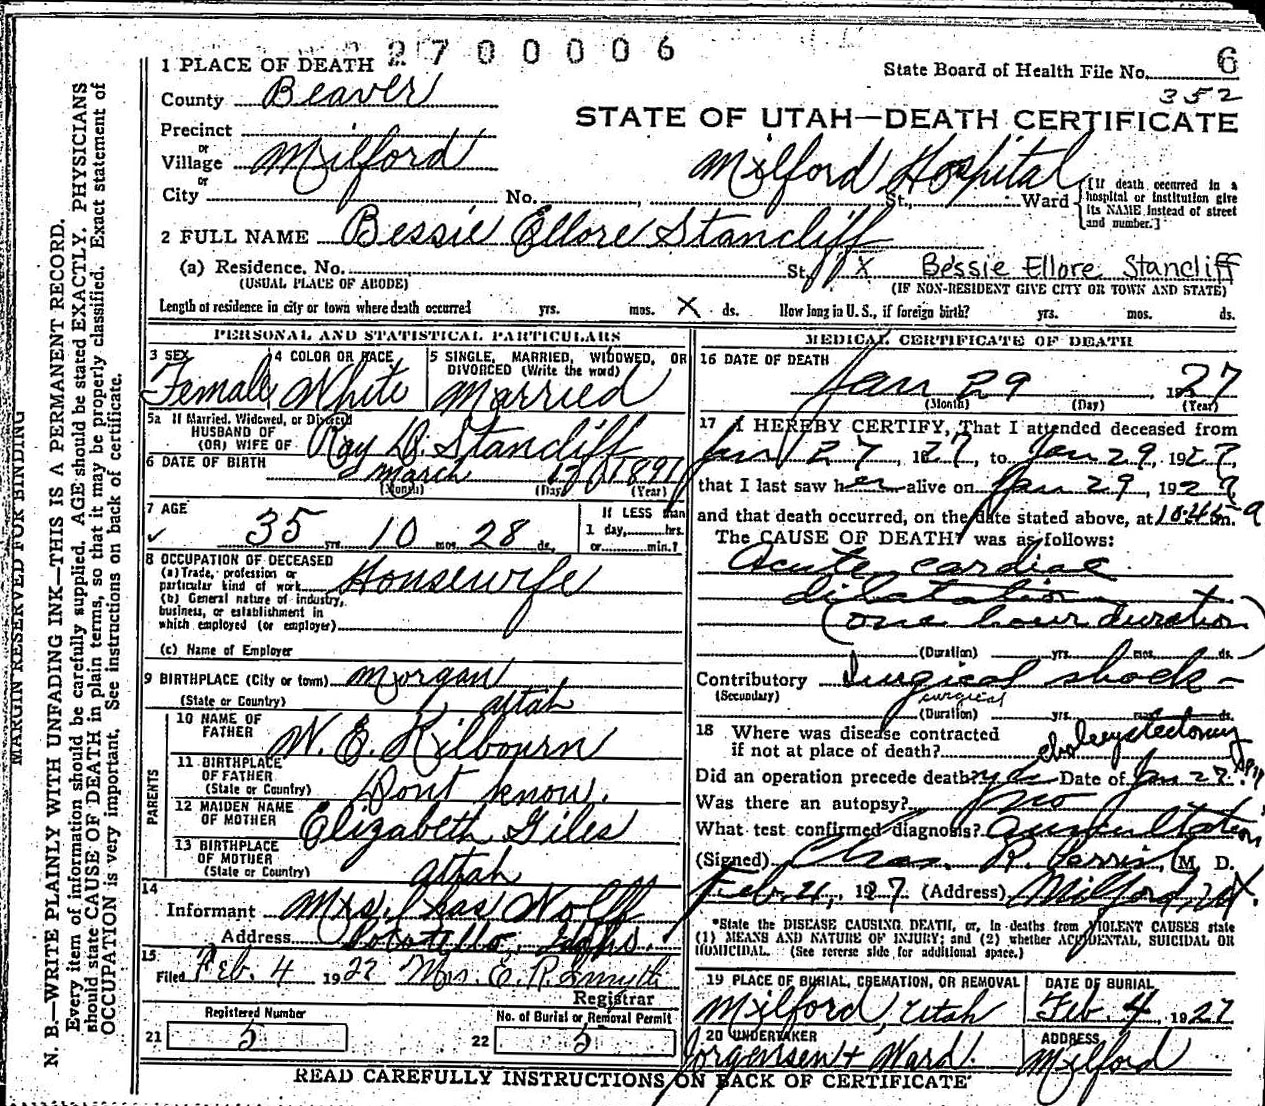 2700006
1 PLACE OF DEATH
State Board of Health File No. 6
352
County Beaver
STATE OF UTAH—DEATH CERTIFICATE
Precinct
or
Village Milford
Milford Hospital
or
City No. , St., Ward
[If death occurred in a
hospital or institution give
its NAME instead of street
and number.]
2 FULL NAME Bessie Ellore Stancliff
(a) Residence. No. St. X Bessie Ellore Stancliff
(USUAL PLACE OF ABODE) (IF NON-RESIDENT GIVE CITY OR TOWN AND STATE)
Length of residence in city or town where death occurred yrs. mos. X ds. How long in U. S., if foreign birth? yrs. mos. ds.
PERSONAL AND STATISTICAL PARTICULARS
3 SEX
Female
4 COLOR OR RACE
White
5 SINGLE, MARRIED, WIDOWED, OR
DIVORCED (Write the word)
Married
5a If Married, Widowed, or Divorced
HUSBAND OF
(OR) WIFE OF Ray D. Stancliff
6 DATE OF BIRTH March 1891
(Month) (Day) (Year)
7 AGE
35 yrs. 10 mos. 28 ds.
If LESS than
1 day, hrs.
or min.?
8 OCCUPATION OF DECEASED
(a) Trade, profession or
particular kind of work Housewife
(b) General nature of industry,
business, or establishment in
which employed (or employer)
(c) Name of Employer
9 BIRTHPLACE (City or town) Morgan
(State or Country) Utah
PARENTS
10 NAME OF
FATHER W. E. Kilbourn
11 BIRTHPLACE
OF FATHER
(State or Country) Dont know.
12 MAIDEN NAME
OF MOTHER Elizabeth Giles
13 BIRTHPLACE
OF MOTHER
(State or Country) Utah
14
Informant Mrs. Chas Wolff
Address Pocatello, Idaho.
15
Filed Feb. 4 1927 Mrs. E. R. Smyth
Registrar
Registered Number
21 5
No. of Burial or Removal Permit
22 5
MEDICAL CERTIFICATE OF DEATH
16 DATE OF DEATH
Jan 29, 1927
(Month) (Day) (Year)
17 I HEREBY CERTIFY, That I attended deceased from
Jan 27, 1927, to Jan 29, 1927,
that I last saw her alive on Jan 29, 1927
and that death occurred, on the date stated above, at 10:45 a m.
The CAUSE OF DEATH* was as follows:
Acute cardiac
dilatation
(one hour duration)
(Duration) yrs. mos. ds.
Contributory Surgical shock—
(Secondary) surgical
(Duration) yrs. mos. ds.
18 Where was disease contracted
if not at place of death?
cholecystectomy
Did an operation precede death? yes Date of Jan 27
Was there an autopsy? no
What test confirmed diagnosis? Auscultation
(Signed) Chas. R. Parrish, M. D.
Feb. 4, 1927 (Address) Milford, Ut.
*State the DISEASE CAUSING DEATH, or, in deaths from VIOLENT CAUSES state
(1) MEANS AND NATURE OF INJURY; and (2) whether ACCIDENTAL, SUICIDAL OR
HOMICIDAL. (See reverse side for additional space.)
19 PLACE OF BURIAL, CREMATION, OR REMOVAL
Milford, Utah
DATE OF BURIAL
Feb. 4, 1927
20 UNDERTAKER
Jorgensen + Ward.
ADDRESS
Milford
READ CAREFULLY INSTRUCTIONS ON BACK OF CERTIFICATE
MARGIN RESERVED FOR BINDING
N. B.—WRITE PLAINLY WITH UNFADING INK—THIS IS A PERMANENT RECORD.
Every item of information should be carefully supplied. AGE should be stated EXACTLY. PHYSICIANS
should state CAUSE OF DEATH in plain terms, so that it may be properly classified. Exact statement of
OCCUPATION is very important. See instructions on back of certificate.